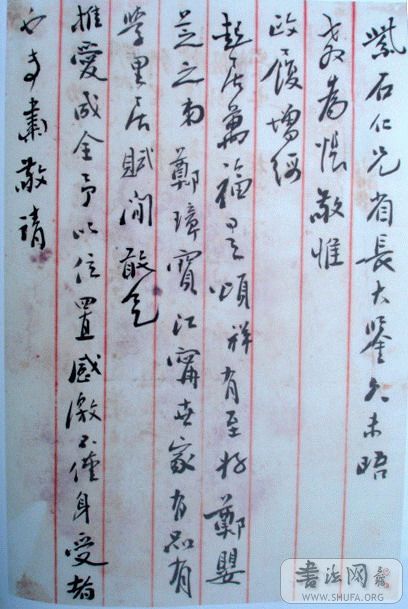 紫石仁兄省長大鑒久未晤
教為悵敬惟
政履增綏
起居萬福是頌祥有至好鄭嬰
芝之甫鄭璋寶江寧世家有品有
學里居賦閒敢乞
推愛成全予以位置感激不僅身受者
也專肅敬請
书法网
WWW.SHUFA.ORG